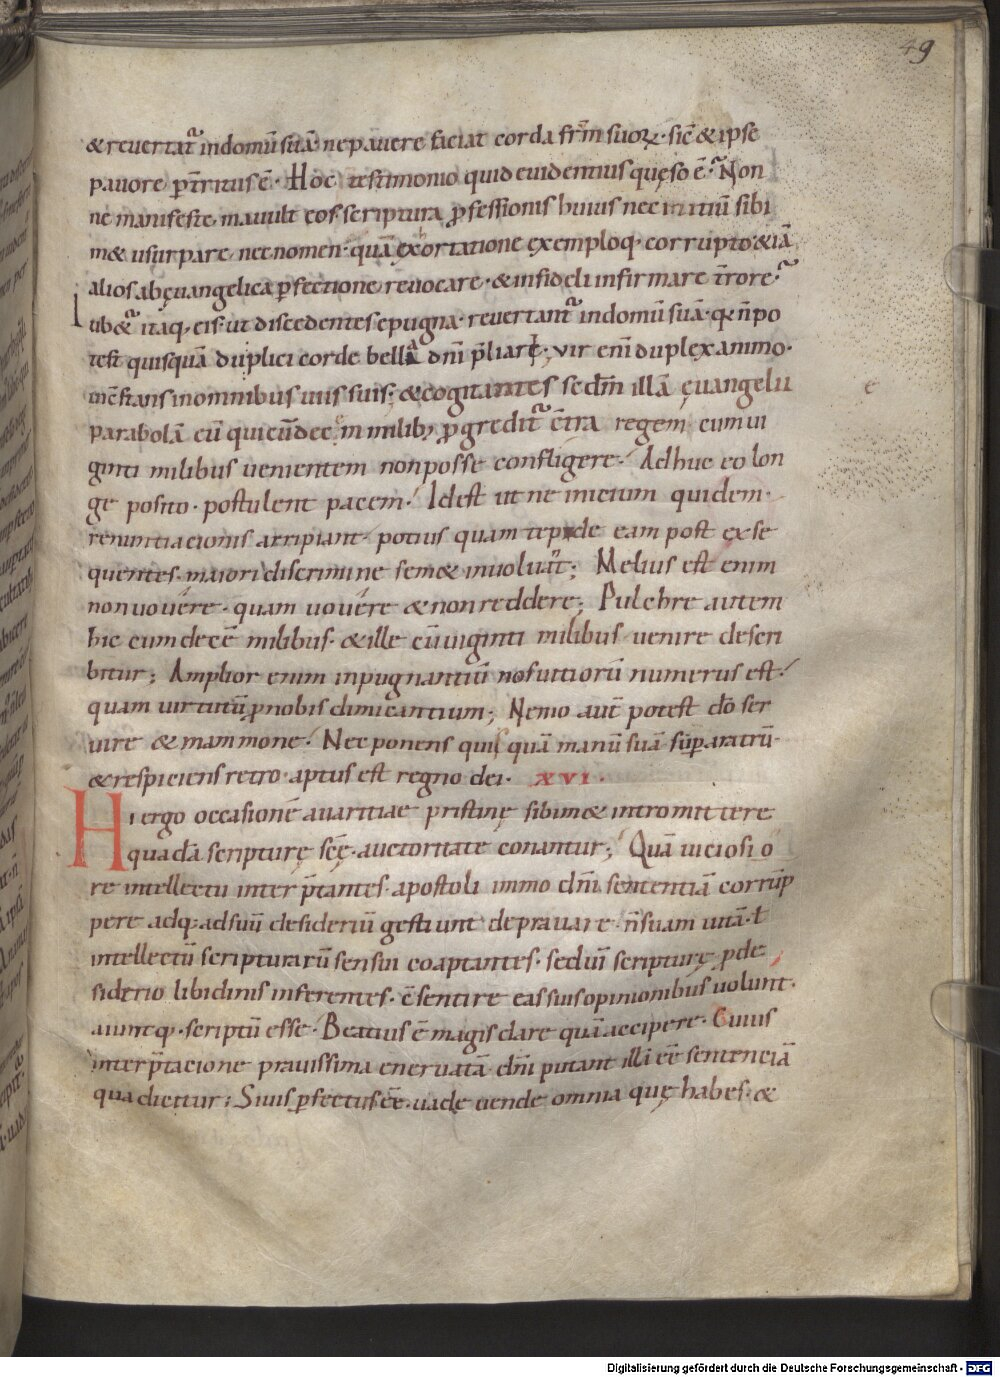 49
& reuertat᷑ in domū suā. ne pauere faciat corda fr̄m suoꝝ. sic̄ & ipse
pauore ꝑt̄ritus ē. Hoc testimonio quid euidentius quęso ē. Non
ne manifeste mauult eos scriptura ꝓfessionis huius nec initiū sibi
m& usurpare. nec nomen. quā exortatione exemploq. corrupto. & iā
alios ab ęuangelica ꝑfectione reuocare. & infideli infirmare t̄rore.
Iub&᷑ itaq. eis. ut discedentes e pugna. reuertant᷑ in domū suā. qͥa n̄ po
test quisquā duplici corde bella dn̄i p̄liari. vir eni duplex animo.
incōstans in omnibus uiis suis; & cogitantes secdm̄ illā ęuangelii
parabolā eū qui cū decē milibꝫ ꝓgredit᷑ c̄tra regem cum ui
ginti milibus uenientem non posse confligere. Adhuc eo lon
ge posito. postulent pacem. Id est ut ne initium quidem.
renuntiacionis arripiant. potius quam tepide eam post exse
quentes. maiori discrimine sem& inuoluāt; Melius est enim
non uouere. quam uouere & non reddere; Pulchre autem
hic cum decē milibus. & ille cū uiginti milibus uenire descri
bitur; Amplior enim inpugnantiū nos uitiorū numerus est.
quam uirtutū ꝓ nobis dimicantium; Nemo aut̄ potest dō ser
uire & mammone. Nec ponens quis quā manū suā suꝑ aratrū.
& respiciens retro. aptus est regno dei. XVI.
Hi ergo occasionē auaritiae pristinę sibim& intromittere
quadā scripturę scę. auctoritate conantur; Quā uicioso
re intellectu interp̄tantes. apostoli immo dn̄i sententiā corrūp
pere adq. ad suū desideriū gestiunt deprauare. n̄ suam uitā. ł
intellectū scripturarū sensui coaptantes. sed uī scripturę ꝓ de
siderio libidinis inferentes. c̄sentire eas suis opinionibus uolunt.
aiuntq. scriptū esse. Beatius ē magis dare quā accipere. Cuius
interp̄tacione prauissima eneruatā dn̄i putant illi eē sentenciā
qua dicitur; Si uis ꝑfectus ēe. uade uende omnia quę habes. &
e
Digitalisierung gefördert durch die Deutsche Forschungsgemeinschaft - DFG